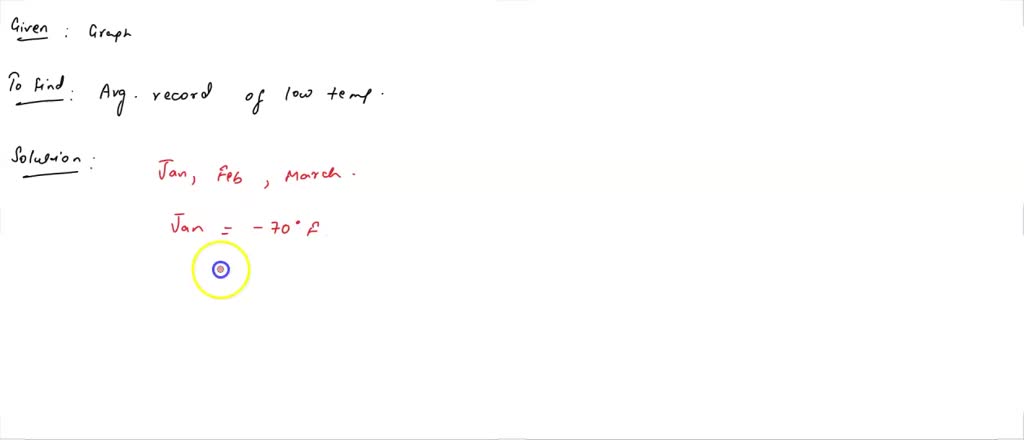 Given : Graph
To find : Avg. record of low temp.
Solution :
Jan, Feb, March.
Jan = -70° F